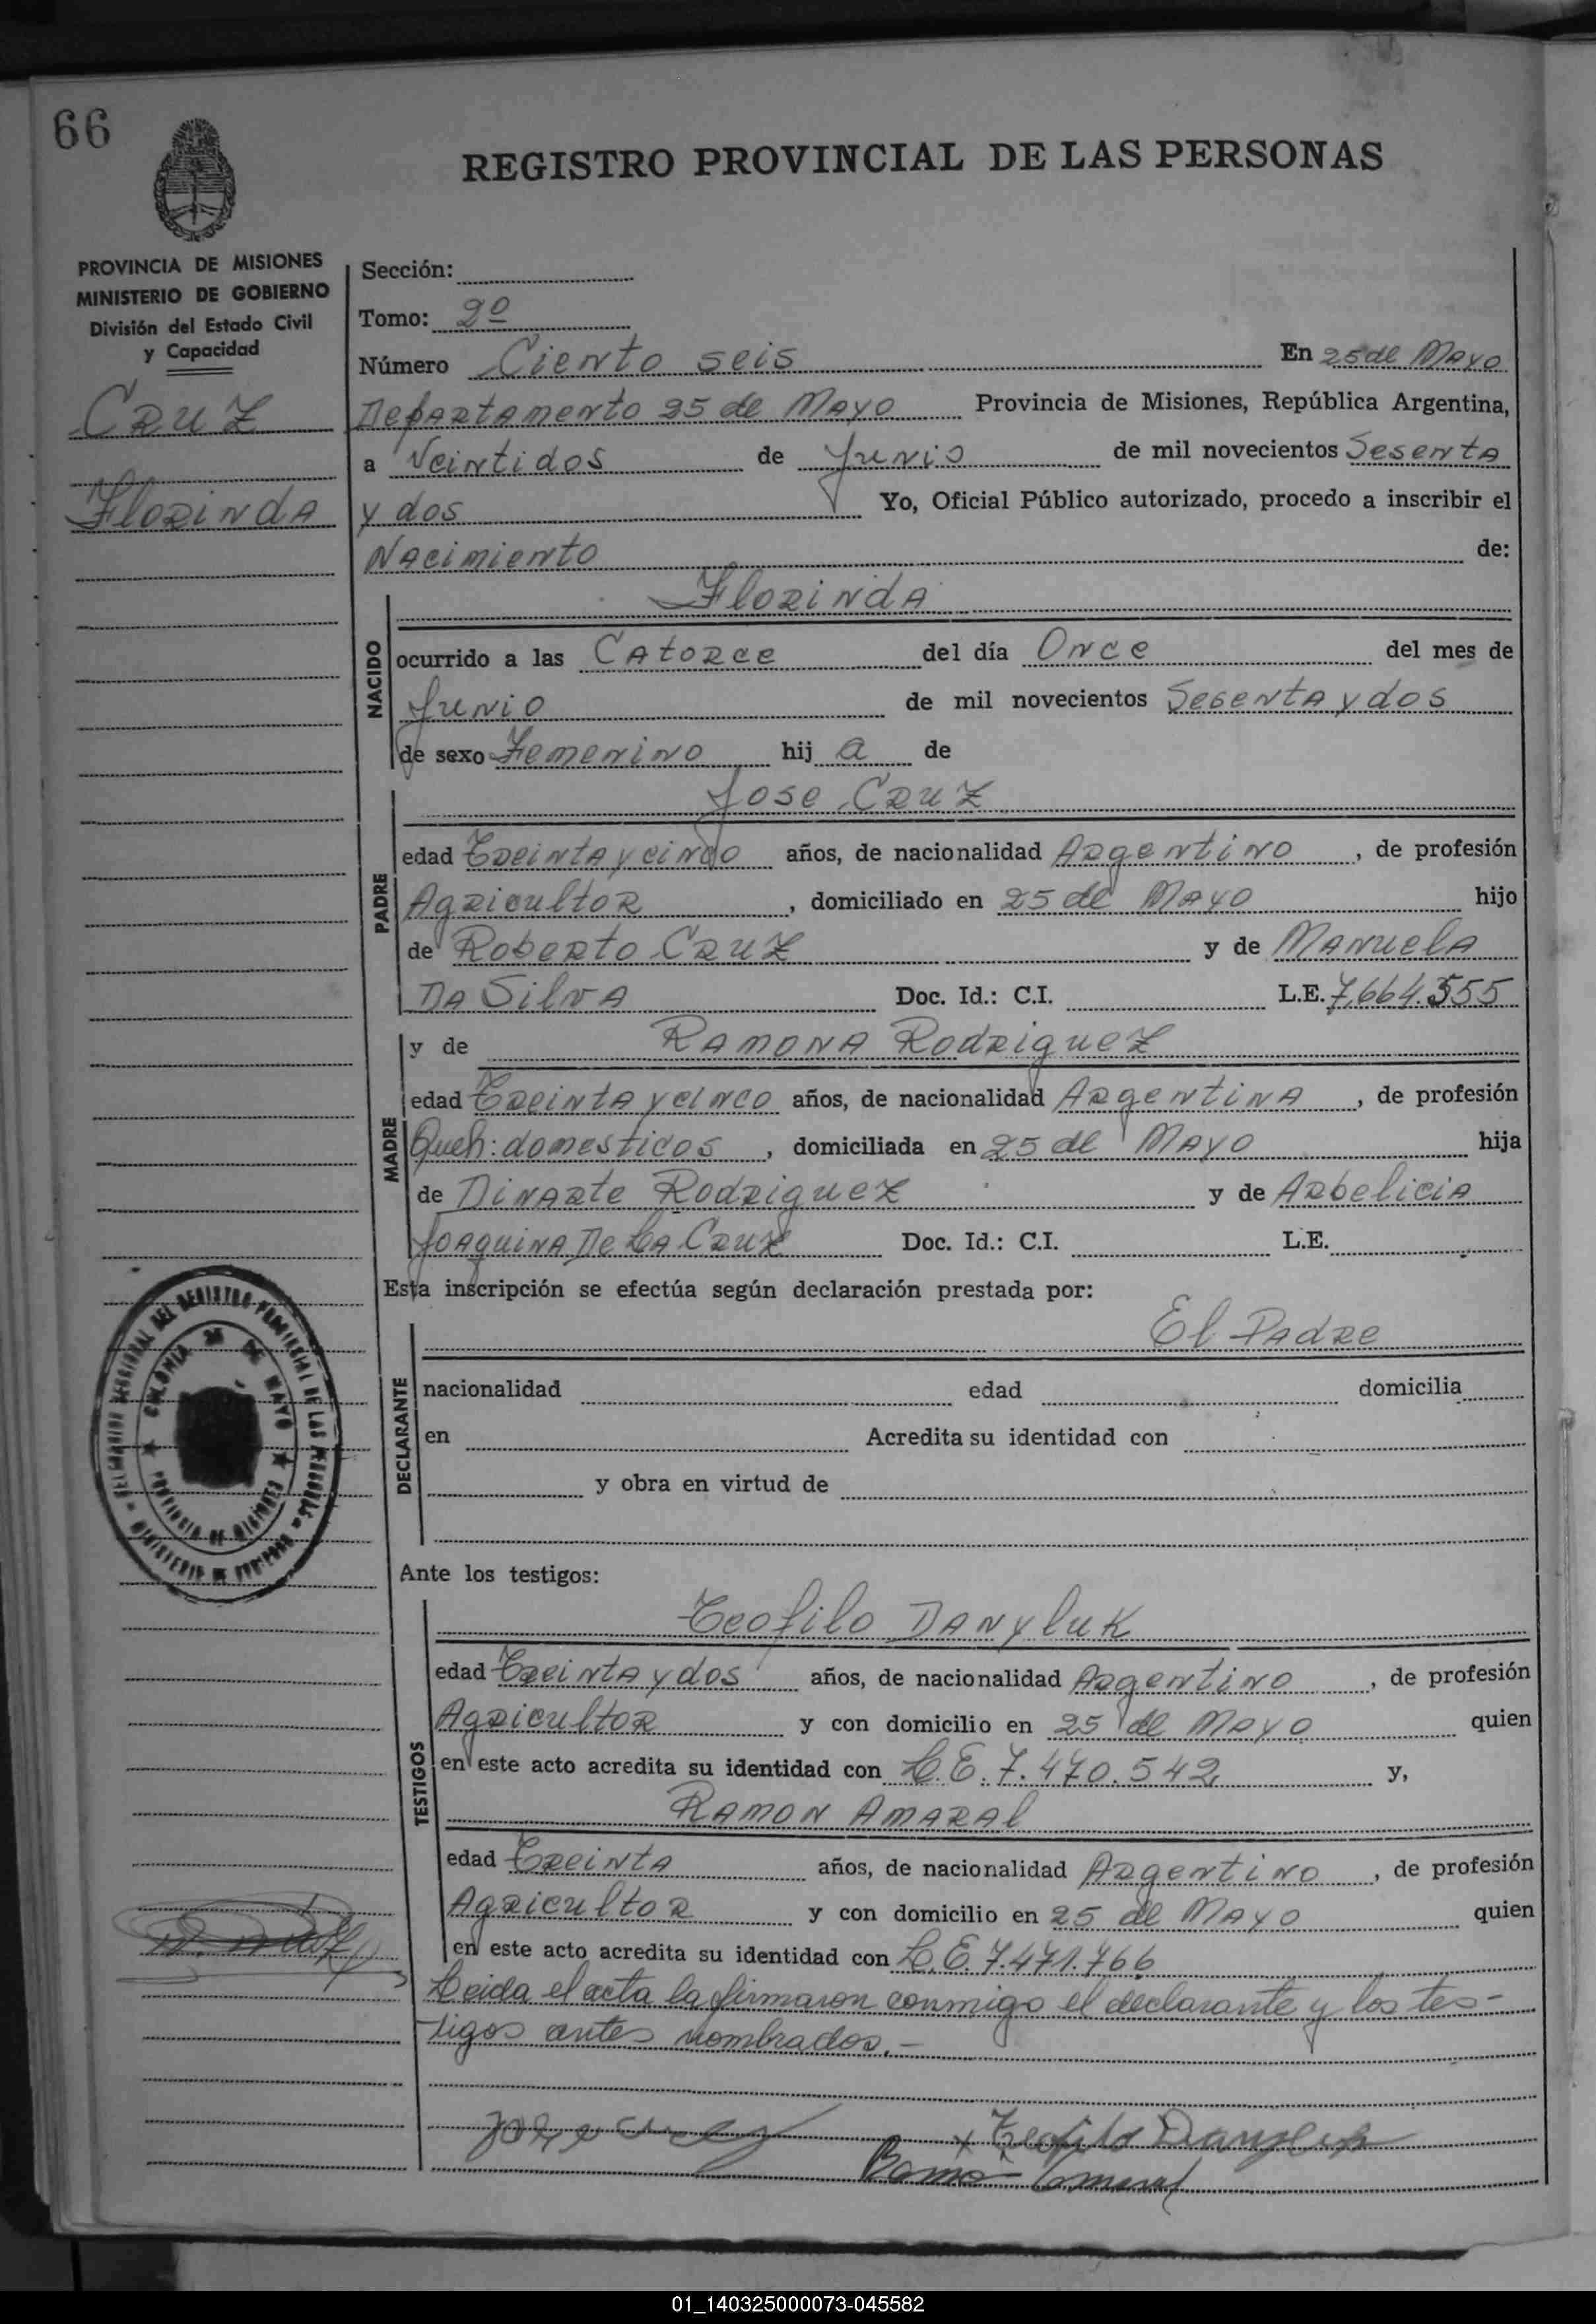 66
REGISTRO PROVINCIAL DE LAS PERSONAS
PROVINCIA DE MISIONES
MINISTERIO DE GOBIERNO
División del Estado Civil
y Capacidad
CRUZ
Florinda
Sección:
Tomo: 2º
Número Ciento seis En 25 de Mayo
Departamento 25 de Mayo Provincia de Misiones, República Argentina,
a Veintidos de Junio de mil novecientos Sesenta
y dos Yo, Oficial Público autorizado, procedo a inscribir el
Nacimiento de:
NACIDO
Florinda
ocurrido a las Catorce del día Once del mes de
Junio de mil novecientos Sesenta y dos
de sexo Femenino hij a de
PADRE
Jose Cruz
edad Treinta y cinco años, de nacionalidad Argentino, de profesión
Agricultor, domiciliado en 25 de Mayo hijo
de Roberto Cruz y de Manuela
Da Silva Doc. Id.: C.I. L.E. 7.664.555
MADRE
y de Ramona Rodriguez
edad Treinta y cinco años, de nacionalidad Argentina, de profesión
Queh: domesticos, domiciliada en 25 de Mayo hija
de Dinarte Rodriguez y de Arbelicia
Joaquina De La Cruz Doc. Id.: C.I. L.E.
Esta inscripción se efectúa según declaración prestada por:
DECLARANTE
El Padre
nacionalidad edad domicilia
en Acredita su identidad con
y obra en virtud de
DELEGACION SECCIONAL DEL REGISTRO PROVINCIAL DE LAS PERSONAS
MINISTERIO DE GOBIERNO
COLONIA 25 DE MAYO
PROVINCIA DE MISIONES
Ante los testigos:
TESTIGOS
Teofilo Danyluk
edad Treinta y dos años, de nacionalidad Argentino, de profesión
Agricultor y con domicilio en 25 de Mayo quien
en este acto acredita su identidad con L.E. 7.470.542 y,
Ramon Amaral
edad Treinta años, de nacionalidad Argentino, de profesión
Agricultor y con domicilio en 25 de Mayo quien
en este acto acredita su identidad con L.E. 7.471.766
Leida el acta la firmaron conmigo el declarante y los tes-
tigos antes nombrados.-
Jose Cruz
x Teofilo Danyluk
Ramon Amaral
01_140325000073-045582